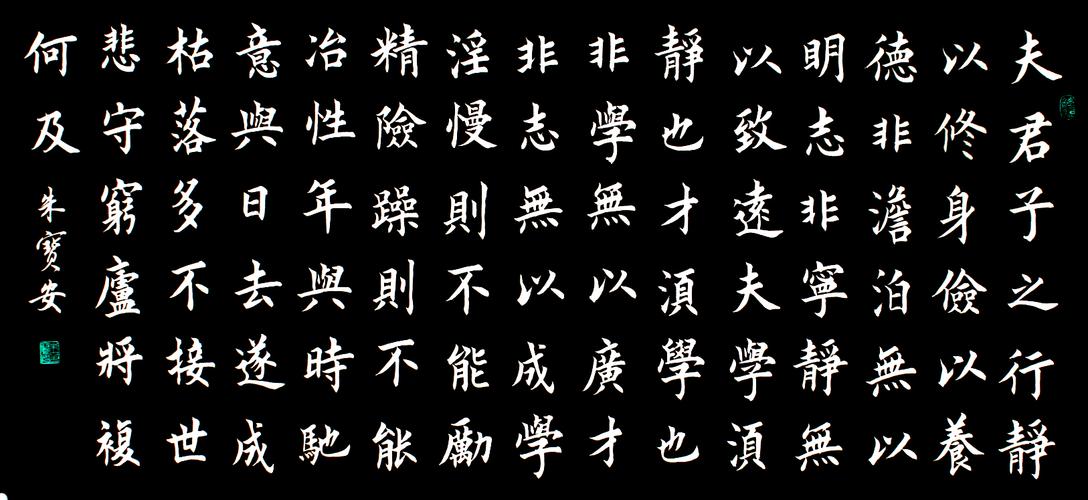 夫君子之行靜
以修身儉以養
德非澹泊無以
明志非寧靜無
以致遠夫學湏
靜也才湏學也
非學無以廣才
非志無以成學
淫慢則不能勵
精險躁則不能
冶性年與時馳
意與日去遂成
枯落多不接世
悲守窮廬將複
何及
朱寶安